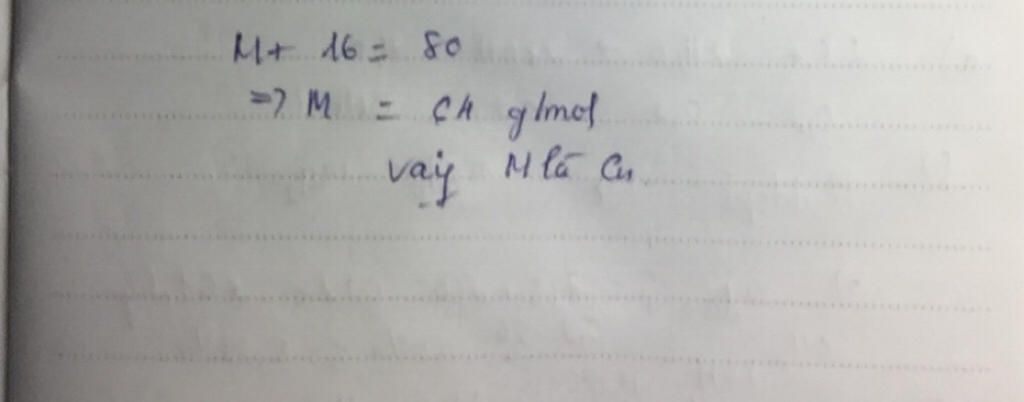 M + 16 = 80
=> M = 64 g/mol
Vậy M là Cu